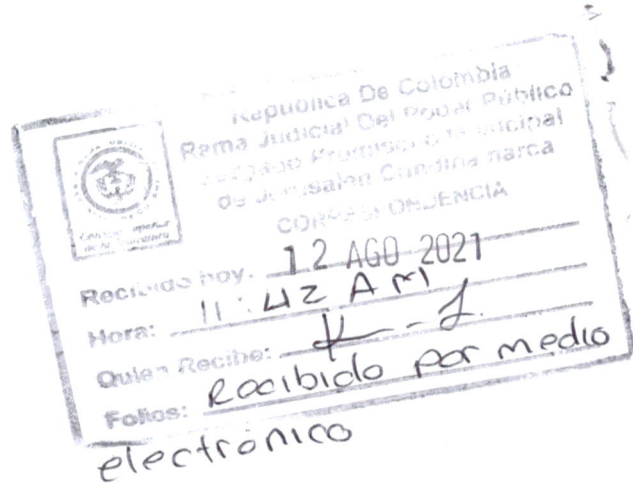 República De Colombia
Rama Judicial Del Poder Público
Juzgado Promiscuo Municipal
de Jerusalen Cundinamarca
CORRESPONDENCIA
Consejo Superior
de la Judicatura
Recibido hoy. 12 AGO 2021
Hora: 11:42 AM
Quien Recibe:
Folios: Recibido por medio
electrónico